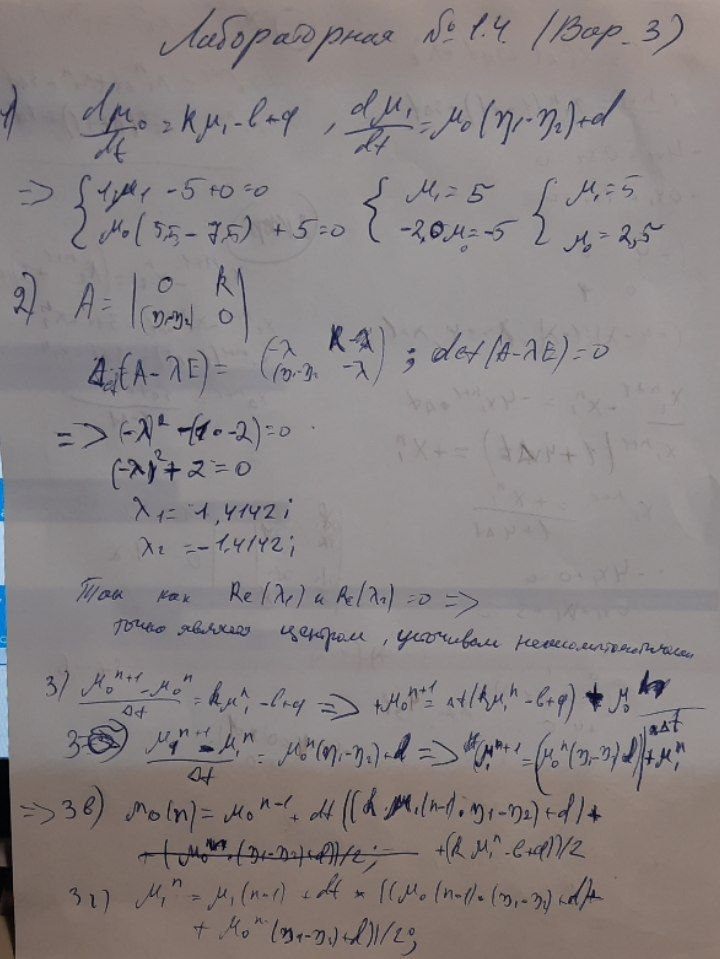 Лабораторная № 1.4. (Вар. 3)
1) dμ₀/dt = kμ₁ - b + q , dμ₁/dt = μ₀(η₁-η₂)+d
=> { 1μ₁ - 5 + 0 = 0 { μ₁ = 5 { μ₁ = 5
μ₀(5,5 - 7,5) + 5 = 0 -2,0μ₀ = -5 μ₀ = 2,5
2) A = | 0 k |
| (η₁-η₂) 0 |
det(A-λE) = (-λ k
η₁-η₂ -λ) ; det(A-λE)=0
=> (-λ)² - (1·-2) = 0
(-λ)² + 2 = 0
λ₁ = 1,4142i
λ₂ = -1,4142i
Так как Re(λ₁) и Re(λ₂) = 0 =>
точка центром,
3) (μ₀ⁿ⁺¹ - μ₀ⁿ)/Δt = kμ₁ⁿ - b + q => μ₀ⁿ⁺¹ = Δt(kμ₁ⁿ - b + q) + μ₀
(μ₁ⁿ⁺¹ - μ₁ⁿ)/Δt = μ₀ⁿ(η₁-η₂)+d => μ₁ⁿ⁺¹ = (μ₀ⁿ(η₁-η₂) d) Δt + μ₁ⁿ
=> 3в) μ₀(n) = μ₀ⁿ⁻¹ + dt((k·μ₁(n-1)·η₁-η₂)+d)+
+(kμ₁ⁿ-b+d))/2
3г) μ₁ⁿ = μ₁(n-1) + dt * ((μ₀(n-1)*(η₁-η₂)+d)+
+ μ₀ⁿ(η₁-η₂)+d))/2;